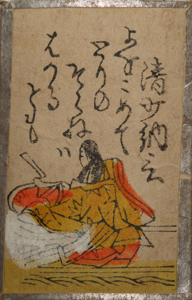 清少納言
よをこめて
とりの
そらねハ
はかる
とも